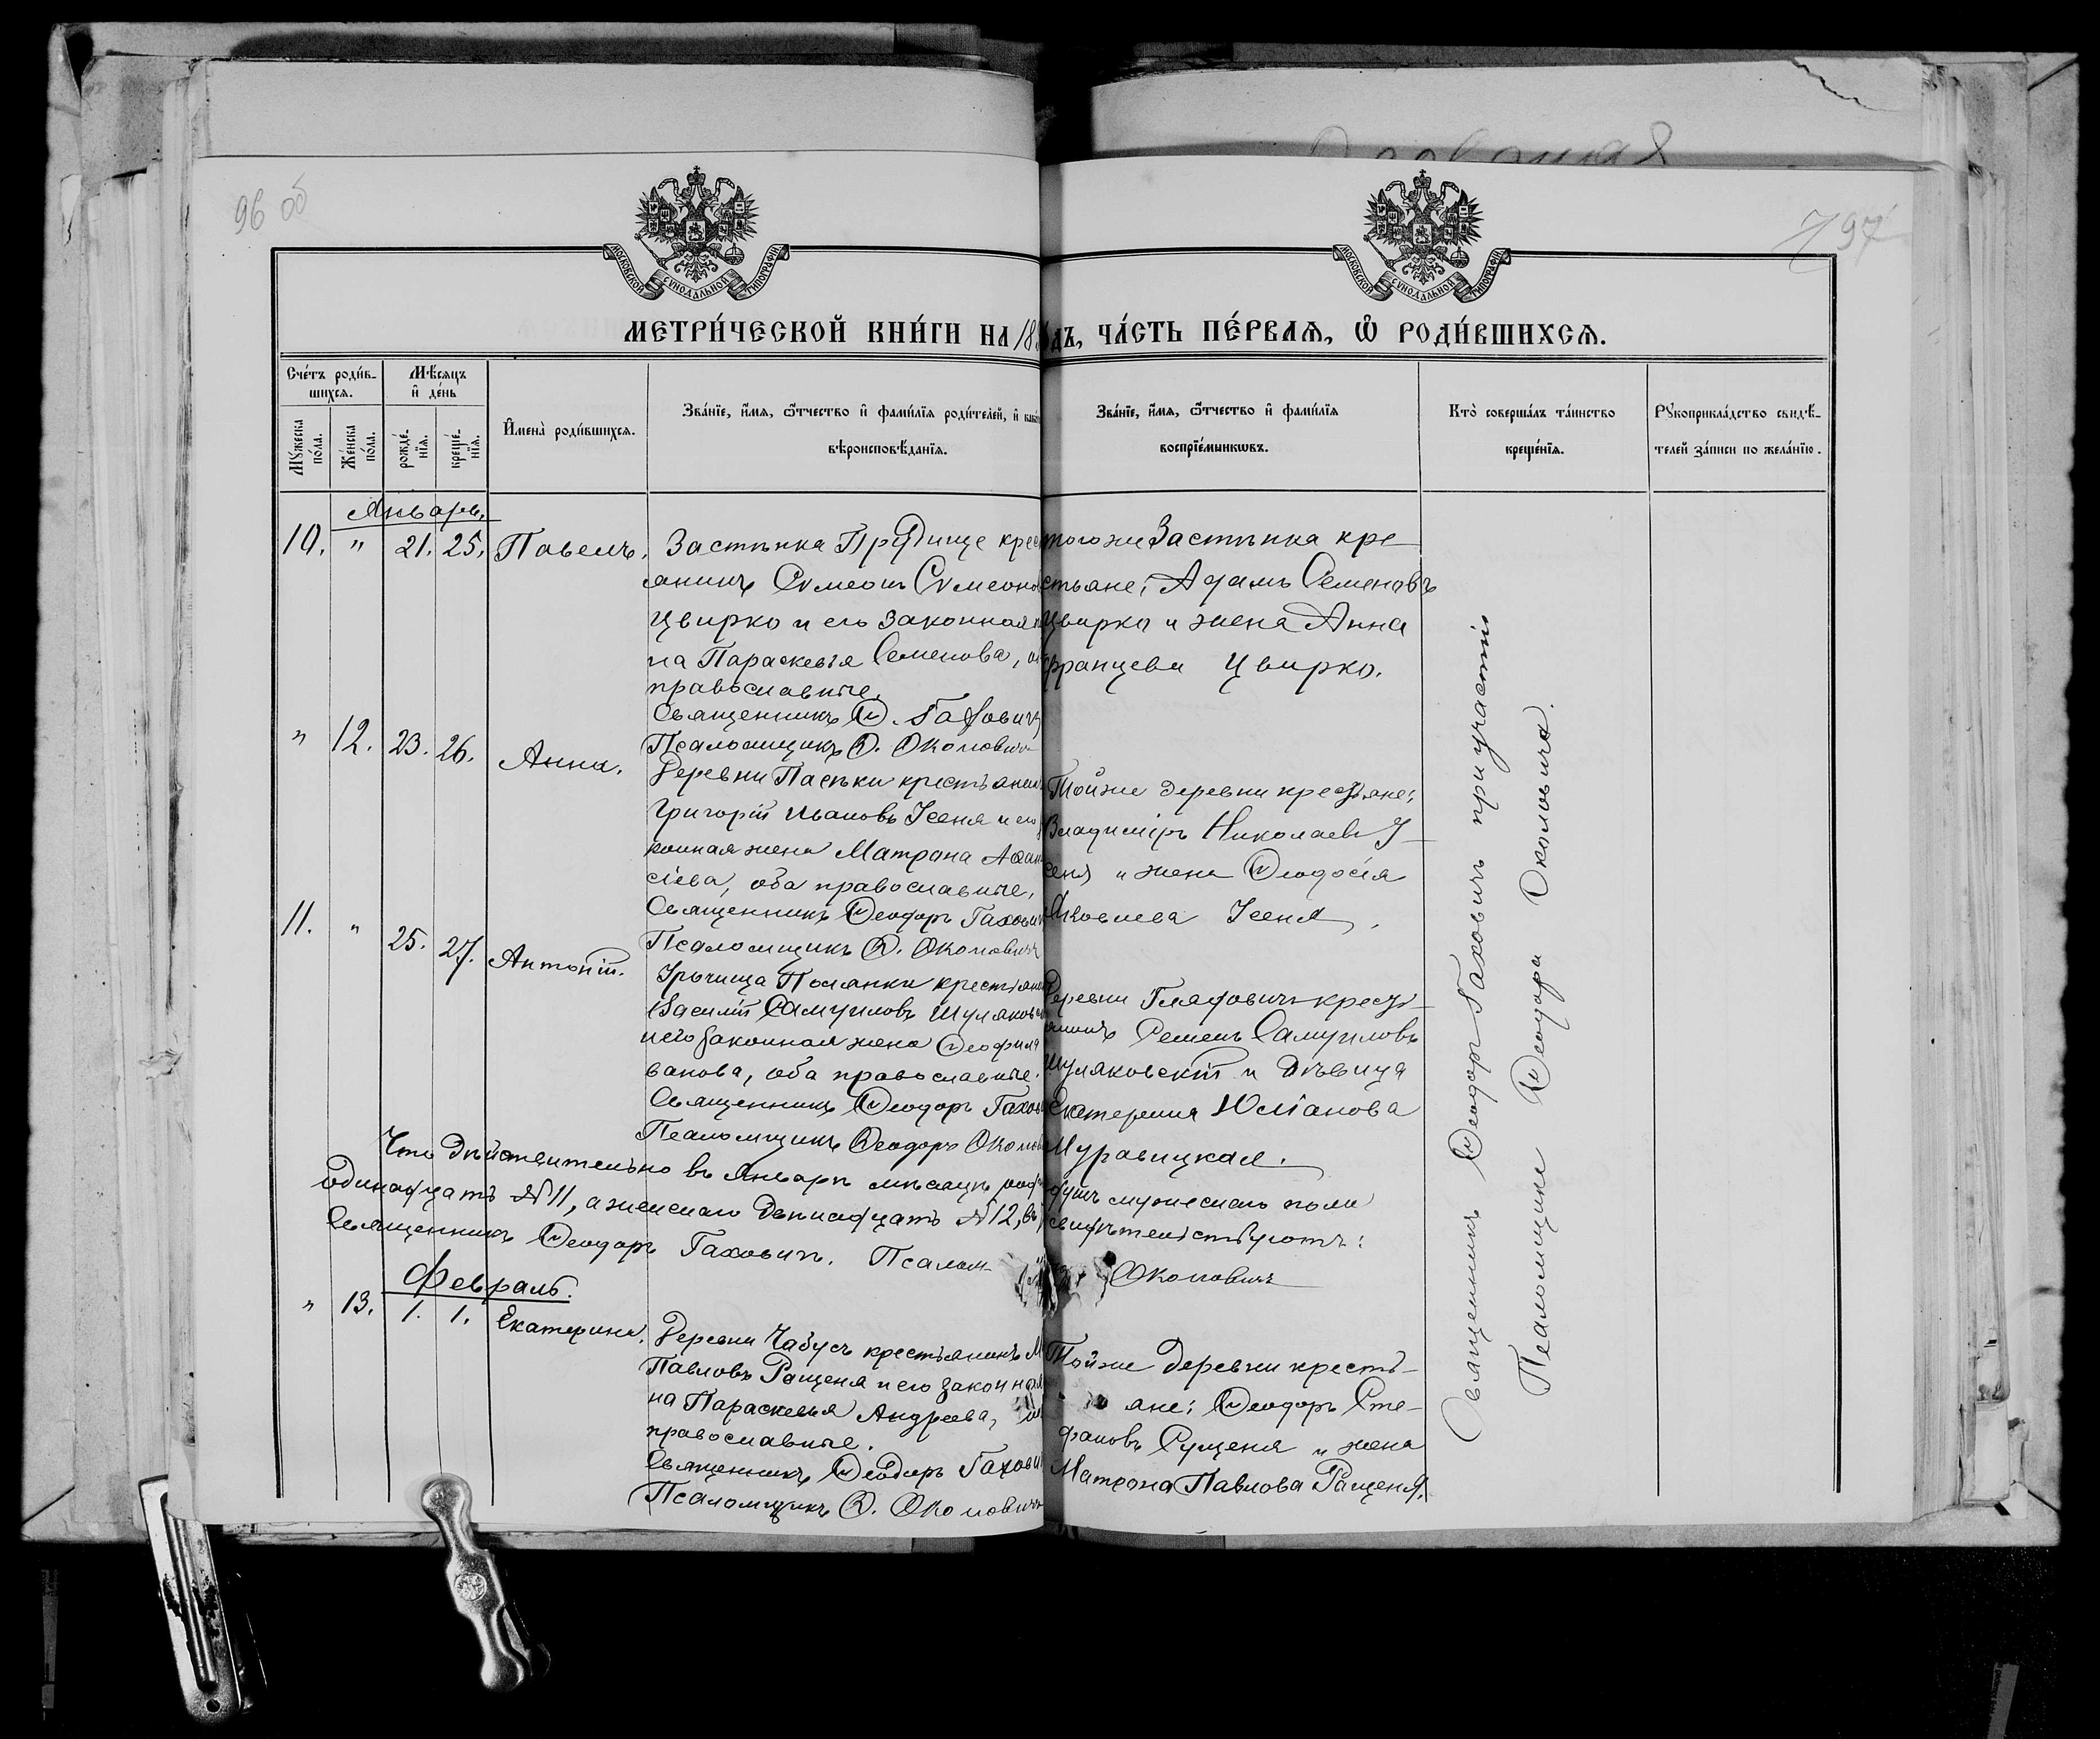 96 об
97
МОСКОВСКОЙ СѴНОДАЛЬНОЙ ТИПОГРАФІИ
МОСКОВСКОЙ СѴНОДАЛЬНОЙ ТИПОГРАФІИ
МЕТРИ́ЧЕСКОЙ КНИ́ГИ НА 18 ДЪ, ЧА́СТЬ ПЕ́РВАЯ, Ѡ҆ РОДИ́ВШИХСЯ.
Сче́тъ роди́в-
шихся.
Мѣ́сяцъ
и҆ де́нь
Мꙋ́жеска
по́ла.
Же́нска
по́ла.
рожде́-
нїя.
креще́-
нїя.
И҆мена̀ роди́вшихся.
Зва́нїе, и҆́мя, ѻ҆́тчество и҆ фами́лїя роди́телей, и҆ како́
вѣроисповѣ́данїя.
Зва́нїе, и҆́мя, ѻ҆́тчество и҆ фами́лїя
воспрїе́мникѡвъ.
Кто̀ соверша́лъ та́инство
креще́нїя.
Рꙋкоприкла́дство свидѣ́-
телей за́писи по жела́нїю.
Январь.
10. " 21. 25. Павелъ.
Застѣнка Прудище крес
янинъ Сѵмеонъ Сѵмеоно
Цвирко и его законная
на Параскевія Семенова,
православные.
Священникъ Ѳ. Гахович
Псаломщикъ Ѳ. Околович
тогоже Застѣнка кре-
стьяне; Адамъ Семеновъ
Цвирко и жена Анна
Францева Цвирко.
" 12. 23. 26. Анна.
Деревни Пасѣки крестьянин
Григорій Ивановъ Усеня и его
конная жена Матрона Аѳана
сіева, оба православные,
Священникъ Ѳеодоръ Гахович
Псаломщикъ Ѳ. Околович
Тойже деревни крестьяне;
Владиміръ Николаевъ У-
сеня и жена Ѳеодосія
Яковлева Усеня.
11. " 25. 27. Антоній.
Урочища Полянки крестьянин
Василій Самуиловъ Шуляковск
и его законная жена Ѳеофила
ванова, оба православные.
Священникъ Ѳеодоръ Гахов
Псаломщикъ Ѳеодоръ Околов
Деревни крестъ-
янинъ Семенъ Самуиловъ
Шуляковскій и дѣвица
Екатерина Юліанова
Муравицкая.
Что дѣйствительно въ Январѣ мѣсяцѣ душъ мужескаго пола
одинадцать № 11, а женскаго двѣнадцать № 12, въ свидѣтельствуютъ:
Священникъ Ѳеодоръ Гаховичъ. Псалом- Околовичъ
Февраль.
" 13. 1. 1. Екатерина.
Деревни Чабусъ крестьянинъ М
Павловъ Ращеня и его законная
на Параскевія Андреева,
православные.
Священникъ Ѳеодоръ Гахови
Псаломщикъ Ѳ. Околович
Тойже деревни кресть-
яне; Ѳеодоръ Сте-
фановъ Ращеня и жена
Матрона Павлова Ращеня.
Священникъ Ѳеодоръ Гаховичъ при участіи
Псаломщика Ѳеодора Околовича.